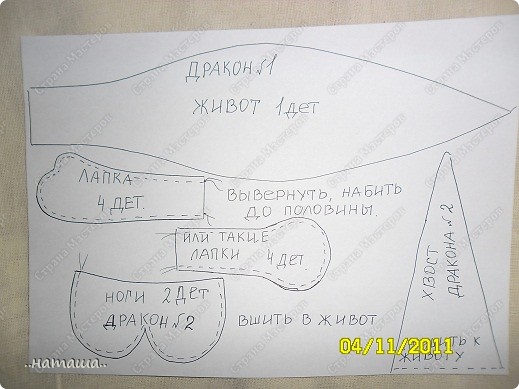 ДРАКОН №1
ЖИВОТ 1 дет
ЛАПКА
4 ДЕТ.
ВЫВЕРНУТЬ, НАБИТЬ
ДО ПОЛОВИНЫ.
ИЛИ ТАКИЕ
ЛАПКИ 4 дет
НОГИ 2 ДЕТ
ДРАКОН №2
ВШИТЬ В ЖИВОТ
ХВОСТ
ДРАКОНА №2
К
ЖИВОТУ
04/11/2011
..наташа..
Страна Мастеров